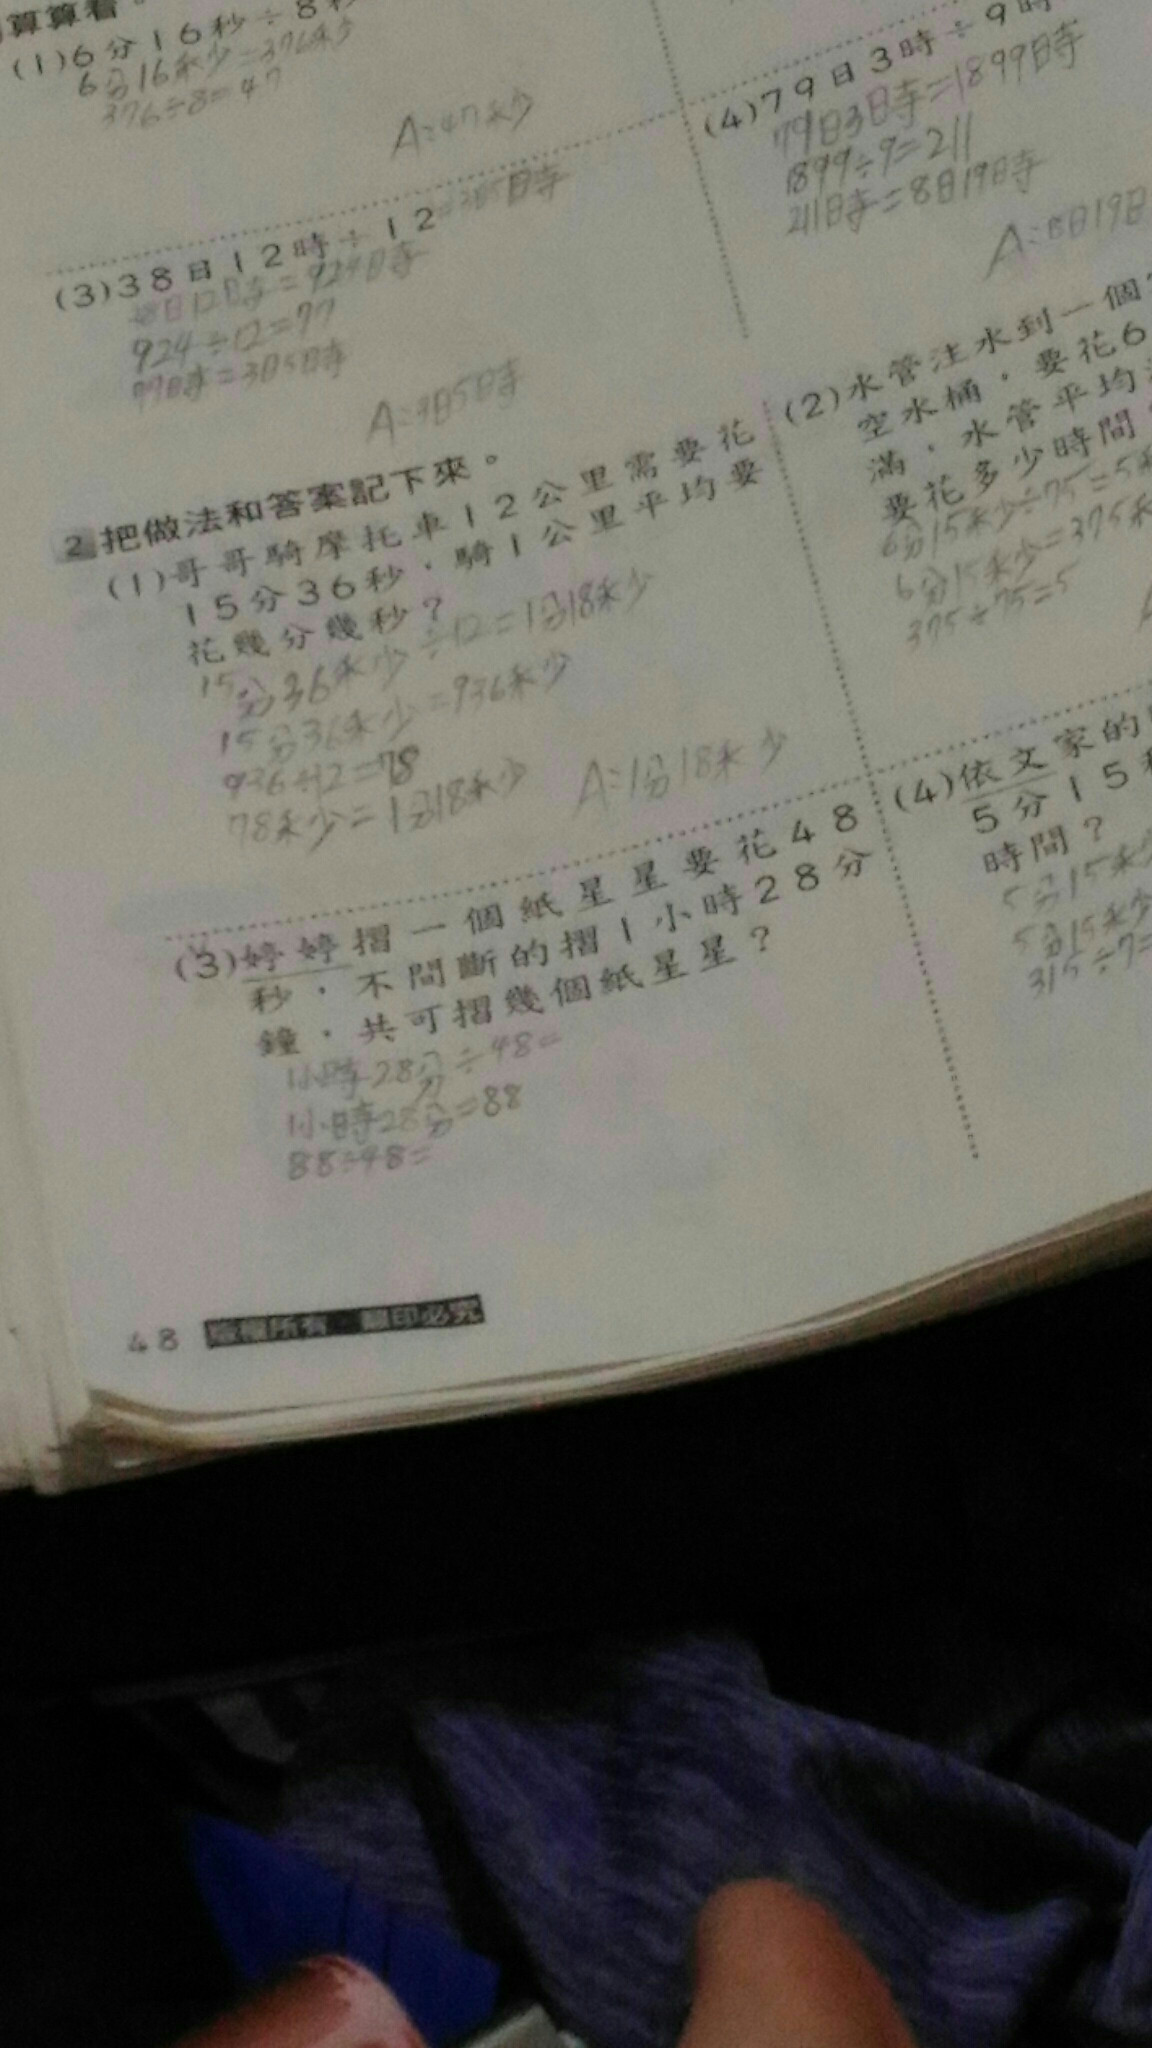 算算看。
(1)6分16秒÷8秒
6分16秒=376秒
376÷8=47
A:47秒
(4)79日3時÷9時
79日3時=1899時
1899÷9=211
211時=8日19時
A:8日19日
(3)38日12時÷12=3日5時
38日12時=924時
924÷12=77
77時=3日5時
A:3日5時
2 把做法和答案記下來。
(1)哥哥騎摩托車12公里需要花
15分36秒,騎1公里平均要
花幾分幾秒?
15分36秒÷12=1分18秒
15分36秒=936秒
936÷12=78
78秒=1分18秒
A:1分18秒
(2)水管注水到一個
空水桶,要花6
滿,水管平均
要花多少時間
6分15秒÷75=5秒
6分15秒=375秒
375÷75=5
A
(3)婷婷摺一個紙星星要花48
秒,不間斷的摺1小時28分
鐘,共可摺幾個紙星星?
1小時28分÷48=
1小時28分=88
88÷48=
(4)依文家的
5分15秒
時間?
5分15秒
5分15秒
315÷7=
48 版權所有·翻印必究